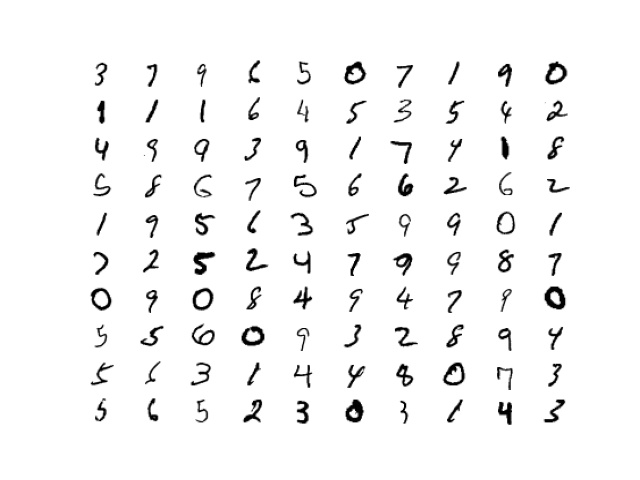 3 7 9 6 5 0 7 1 9 0
1 1 1 6 4 5 3 5 4 2
4 9 9 3 9 1 7 4 1 8
5 8 6 7 5 6 6 2 6 2
1 9 5 6 3 5 9 9 0 1
7 2 5 2 4 7 9 9 8 7
0 9 0 8 4 9 4 7 9 0
5 5 6 0 9 3 2 8 9 4
5 6 3 1 4 4 8 0 7 3
5 6 5 2 3 0 3 1 4 3